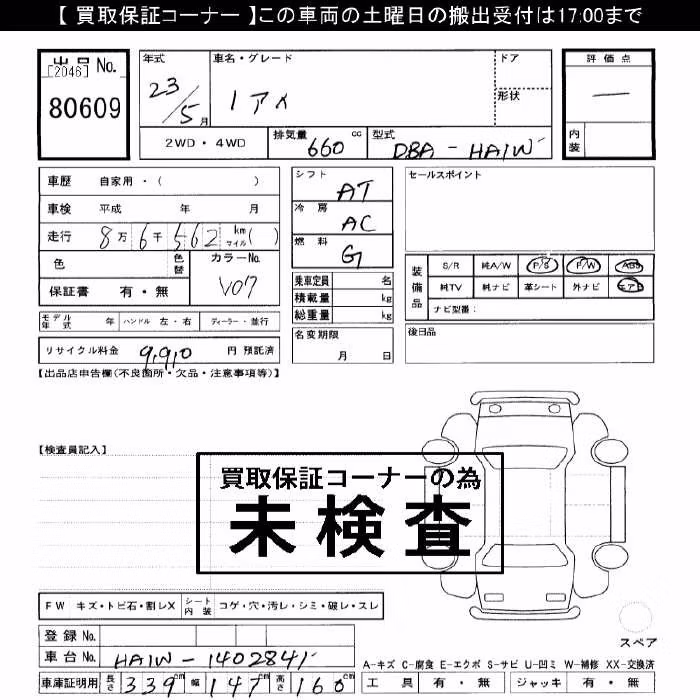 【 買取保証コーナー 】この車両の土曜日の搬出受付は17:00まで
出品 No.
[2046]
80609
年式
23/5 月
車名・グレード
iアメ
ドア
形状
評価点
—
内装
2WD・4WD
排気量 660 cc
型式 DBA-HA1W
車歴 自家用・( )
車検 平成 年 月
走行 8万6千562 km マイル( )
色
色替
カラーNo.
V07
保証書 有・無
シフト AT
冷房 AC
燃料 G
乗車定員 名
積載量 kg
総重量 kg
セールスポイント
装備品
S/R 純A/W P/S P/W ABS
純TV 純ナビ 革シート 外ナビ エアB
ナビ型番:
モデル年式 年 ハンドル 左・右 ディーラー・並行
名変期限
月 日
後日品
リサイクル料金 9,910 円 預託済
【出品店申告欄(不良箇所・欠品・注意事項等)】
【検査員記入】
買取保証コーナーの為
未検査
FW キズ・トビ石・割レX
シート内装 コゲ・穴・汚レ・シミ・破レ・スレ
スペア
登録 No.
車台 No. HA1W-1402841
A-キズ C-腐食 E-エクボ S-サビ U-凹ミ W-補修 XX-交換済
車庫証明用 長さ 339 cm 幅 147 cm 高さ 160 cm
工具 有・無 ジャッキ 有・無